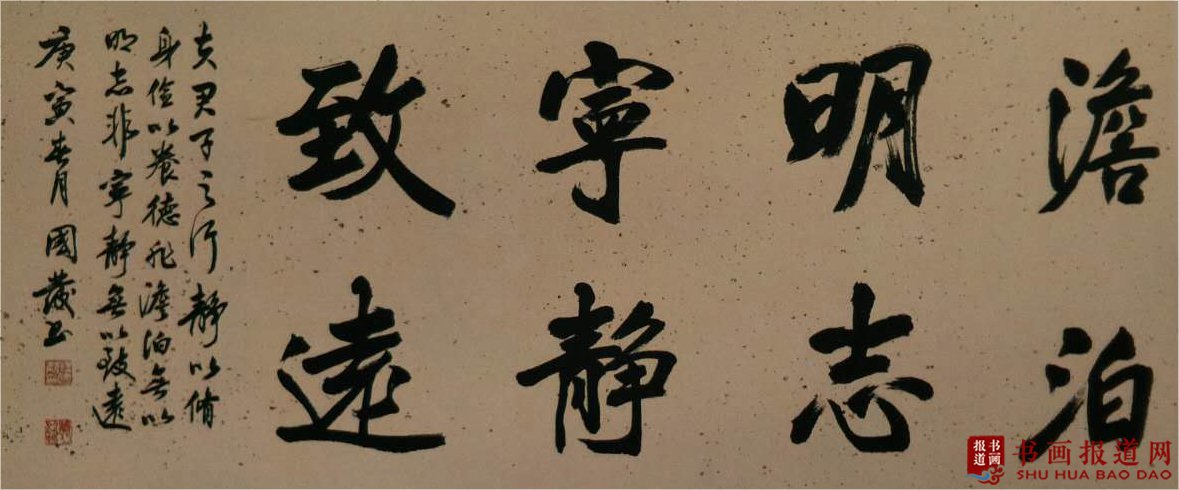 澹泊
明志
寧靜
致遠
夫君子之行靜以脩
身儉以養德非澹泊無以
明志非寧靜無以致遠
庚寅春月國發书
书画
报道
书画报道网
SHU HUA BAO DAO